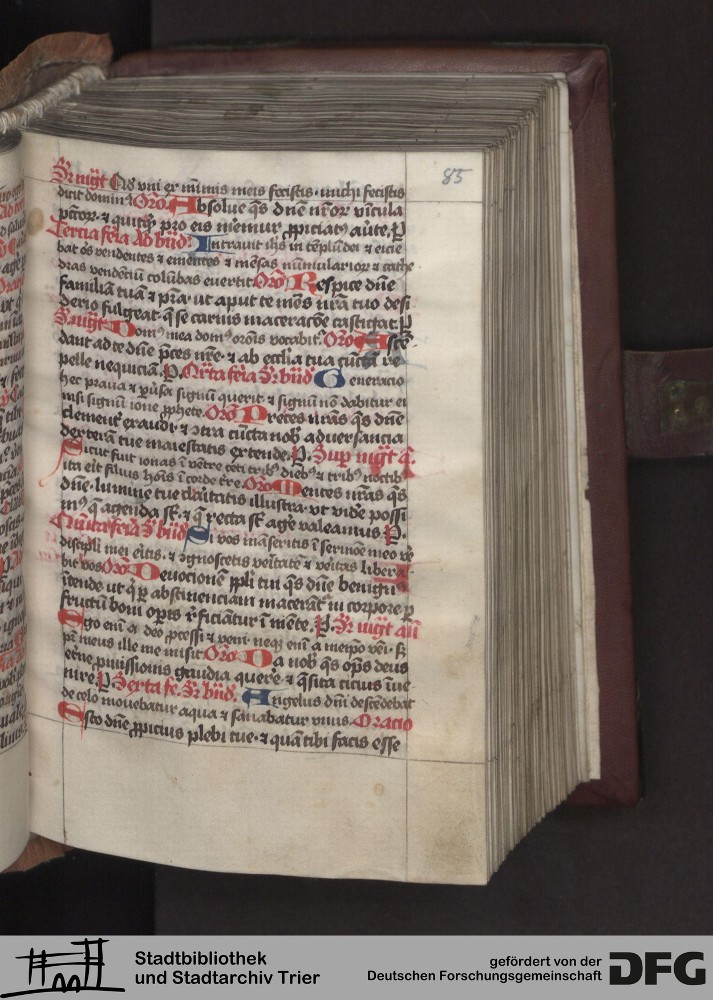 85
uni ex minimis meis fecistis michi fecistis
dicit dominus Oro Absolue qs dne nror vincula
pctor et quitqd pro eis memur ppiciatus aute P
Tercia feia Ad bnd Intrauit ihs in templu dei et eicie
bat oes vendentes et ementes et mesas numularior et cathe
dras vendentiu colubas euertit Oro Respice dne
familia tua et pra ut aput te mens nra tuo desi
derio fulgeat q se carnis maceracoe castigat P
Domus mea domus oronis vocabit Oro Ascen
dant ad te dne pces nre et ab ecclia tua cuncta re
pelle nequicia P Qrta feia Sr bnd Generacio
hec praua et puersa signu querit et signu no dabitur ei
nisi signu ione pphete Oro Preces nras qs dne
clementer exaudi et contra cuncta nob aduersancia
dextera tue maiestatis extende P Sup mgt a
Sicut fuit ionas i ventre ceti trib dieb et trib noctib
ita erit filius hois i corde tre Oro Mentes nras qs
dne lumine tue claritatis illustra ut vide possi
mus q agenda st et q recta st age valeamus P
Quita feia Sr bnd Si vos maseritis i sermoe meo ve
discipli mei eritis et cognoscetis veritate et veritas libera
bit vos Oro Deuocione ppli tui qs dne benignus
itende ut qui p abstinenciam macerant in corpore p
fructu boni opis reficiantur i mete P Sr mgt an
Ego eni ex deo pcessi et veni neq eni a meipo veni s
pr meus ille me misit Oro Da nob qs ops deus
etne pmissionis gaudia quere et qsita cicius inue
nire P Sexta fe Sr bnd Angelus dni descedebat
de celo mouebatur aqua et sanabatur unus Oracio
Esto dne ppicius plebi tue et qua tibi facis esse
Stadtbibliothek
und Stadtarchiv Trier
gefördert von der
Deutschen Forschungsgemeinschaft
DFG